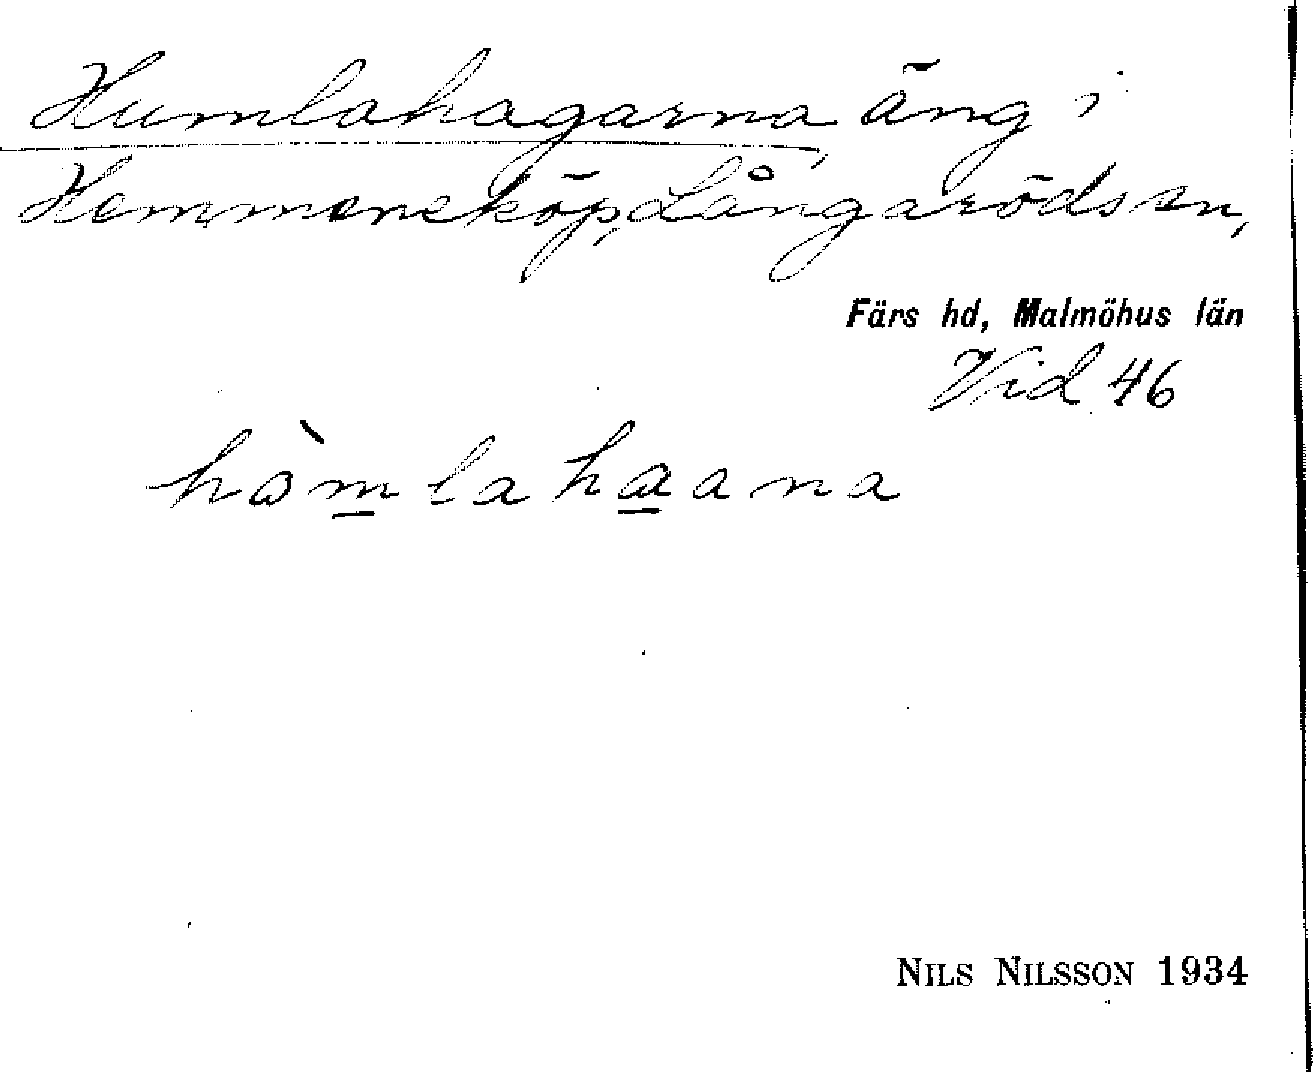 Humlahagarna, äng i
Hemmeneköp, Långaröds sn,
Färs hd, Malmöhus län
Vid 46
hòmlahaana
NILS NILSSON 1934